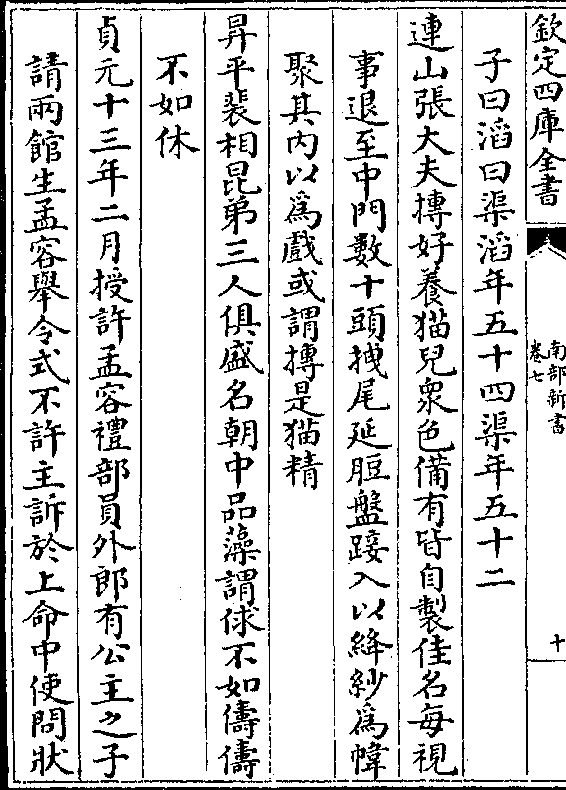 欽定四庫全書
南部新書
卷七
十
子曰滔曰渠滔年五十四渠年五十二
連山張大夫摶好養猫兒衆色備有皆自製佳名每視
事退至中門數十頭拽尾延脰盤踥入以絳紗為幃
聚其内以為戲或謂摶是猫精
昇平裴相昆弟三人俱盛名朝中品藻謂俅不如儔儔
不如休
貞元十三年二月授許孟容禮部員外郎有公主之子
請兩館生孟容舉令式不許主訴於上命中使問狀